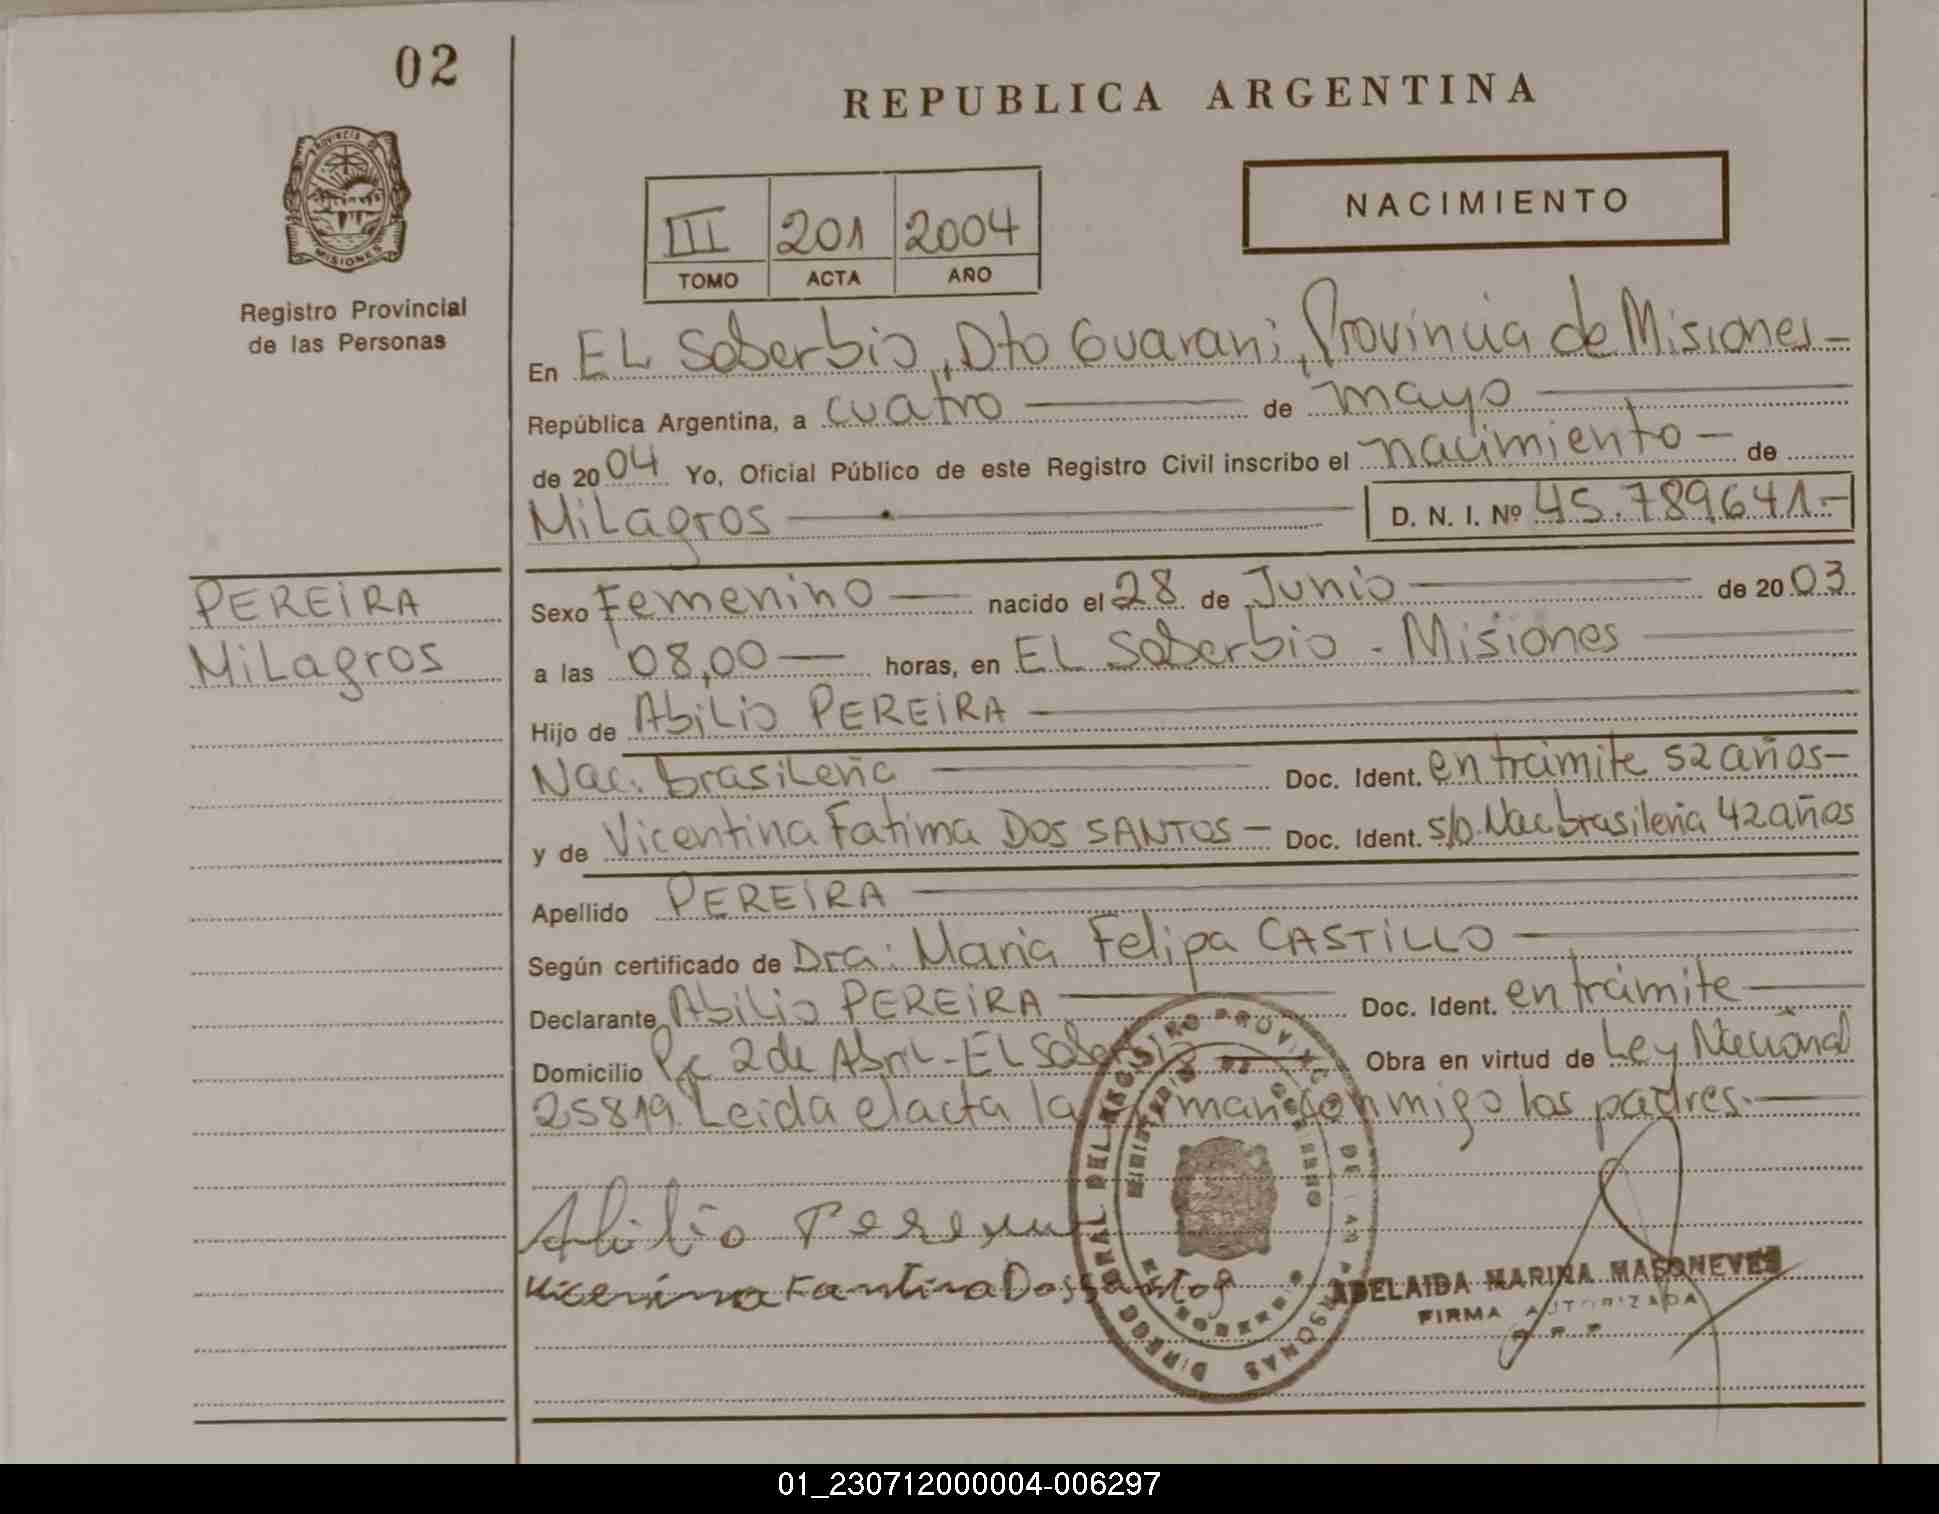 02
REPUBLICA ARGENTINA
PROVINCIA DE
MISIONES
Registro Provincial
de las Personas
NACIMIENTO
III 201 2004
TOMO ACTA AÑO
En EL Soberbio, Dto Guarani, Provincia de Misiones -
República Argentina, a cuatro de mayo
de 2004 Yo, Oficial Público de este Registro Civil inscribo el nacimiento - de
Milagros D. N. I. Nº 45.789.641.-
PEREIRA
Milagros
Sexo Femenino nacido el 28 de Junio de 2003
a las 08,00 horas, en EL Soberbio - Misiones
Hijo de Abilio PEREIRA
Nac. brasileña Doc. Ident. en trámite 52 años-
y de Vicentina Fatima DOS SANTOS - Doc. Ident. s/D. Nac. brasileña 42 años
Apellido PEREIRA
Según certificado de Dra: Maria Felipa CASTILLO
Declarante Abilio PEREIRA Doc. Ident. en trámite
Domicilio 2 de Abril - EL Soberbio Obra en virtud de Ley Nacional
25819. Leida el acta la firman conmigo los padres.
Abilio Pereira
Dos Santos
DIRECC GRAL DEL REGISTRO PROVINC DE LAS PERSONAS
MINISTERIO DE GOBIERNO
MISIONES
ADELAIDA MARINA MASONEVES
FIRMA AUTORIZADA
01_230712000004-006297